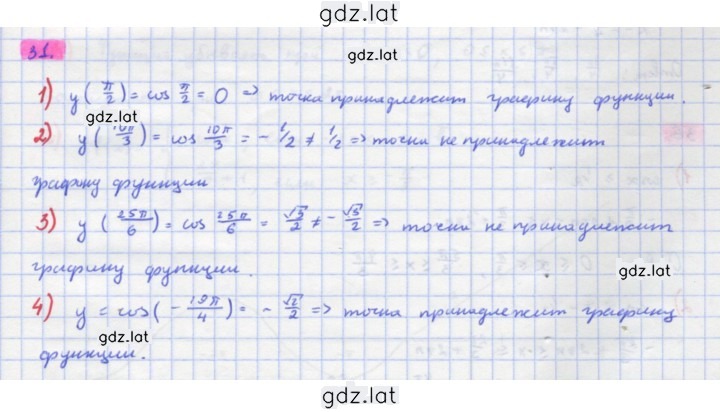 gdz.lat
31.
gdz.lat
1) y(π/2) = cos π/2 = 0 => точка принадлежит графику функции.
gdz.lat
2) y(10π/3) = cos 10π/3 = - 1/2 ≠ 1/2 => точка не принадлежит
графику функции
3) y(25π/6) = cos 25π/6 = √3/2 ≠ - √3/2 => точка не принадлежит
графику функции.
gdz.lat
4) y = cos(- 19π/4) = - √2/2 => точка принадлежит графику
gdz.lat
функции.
gdz.lat